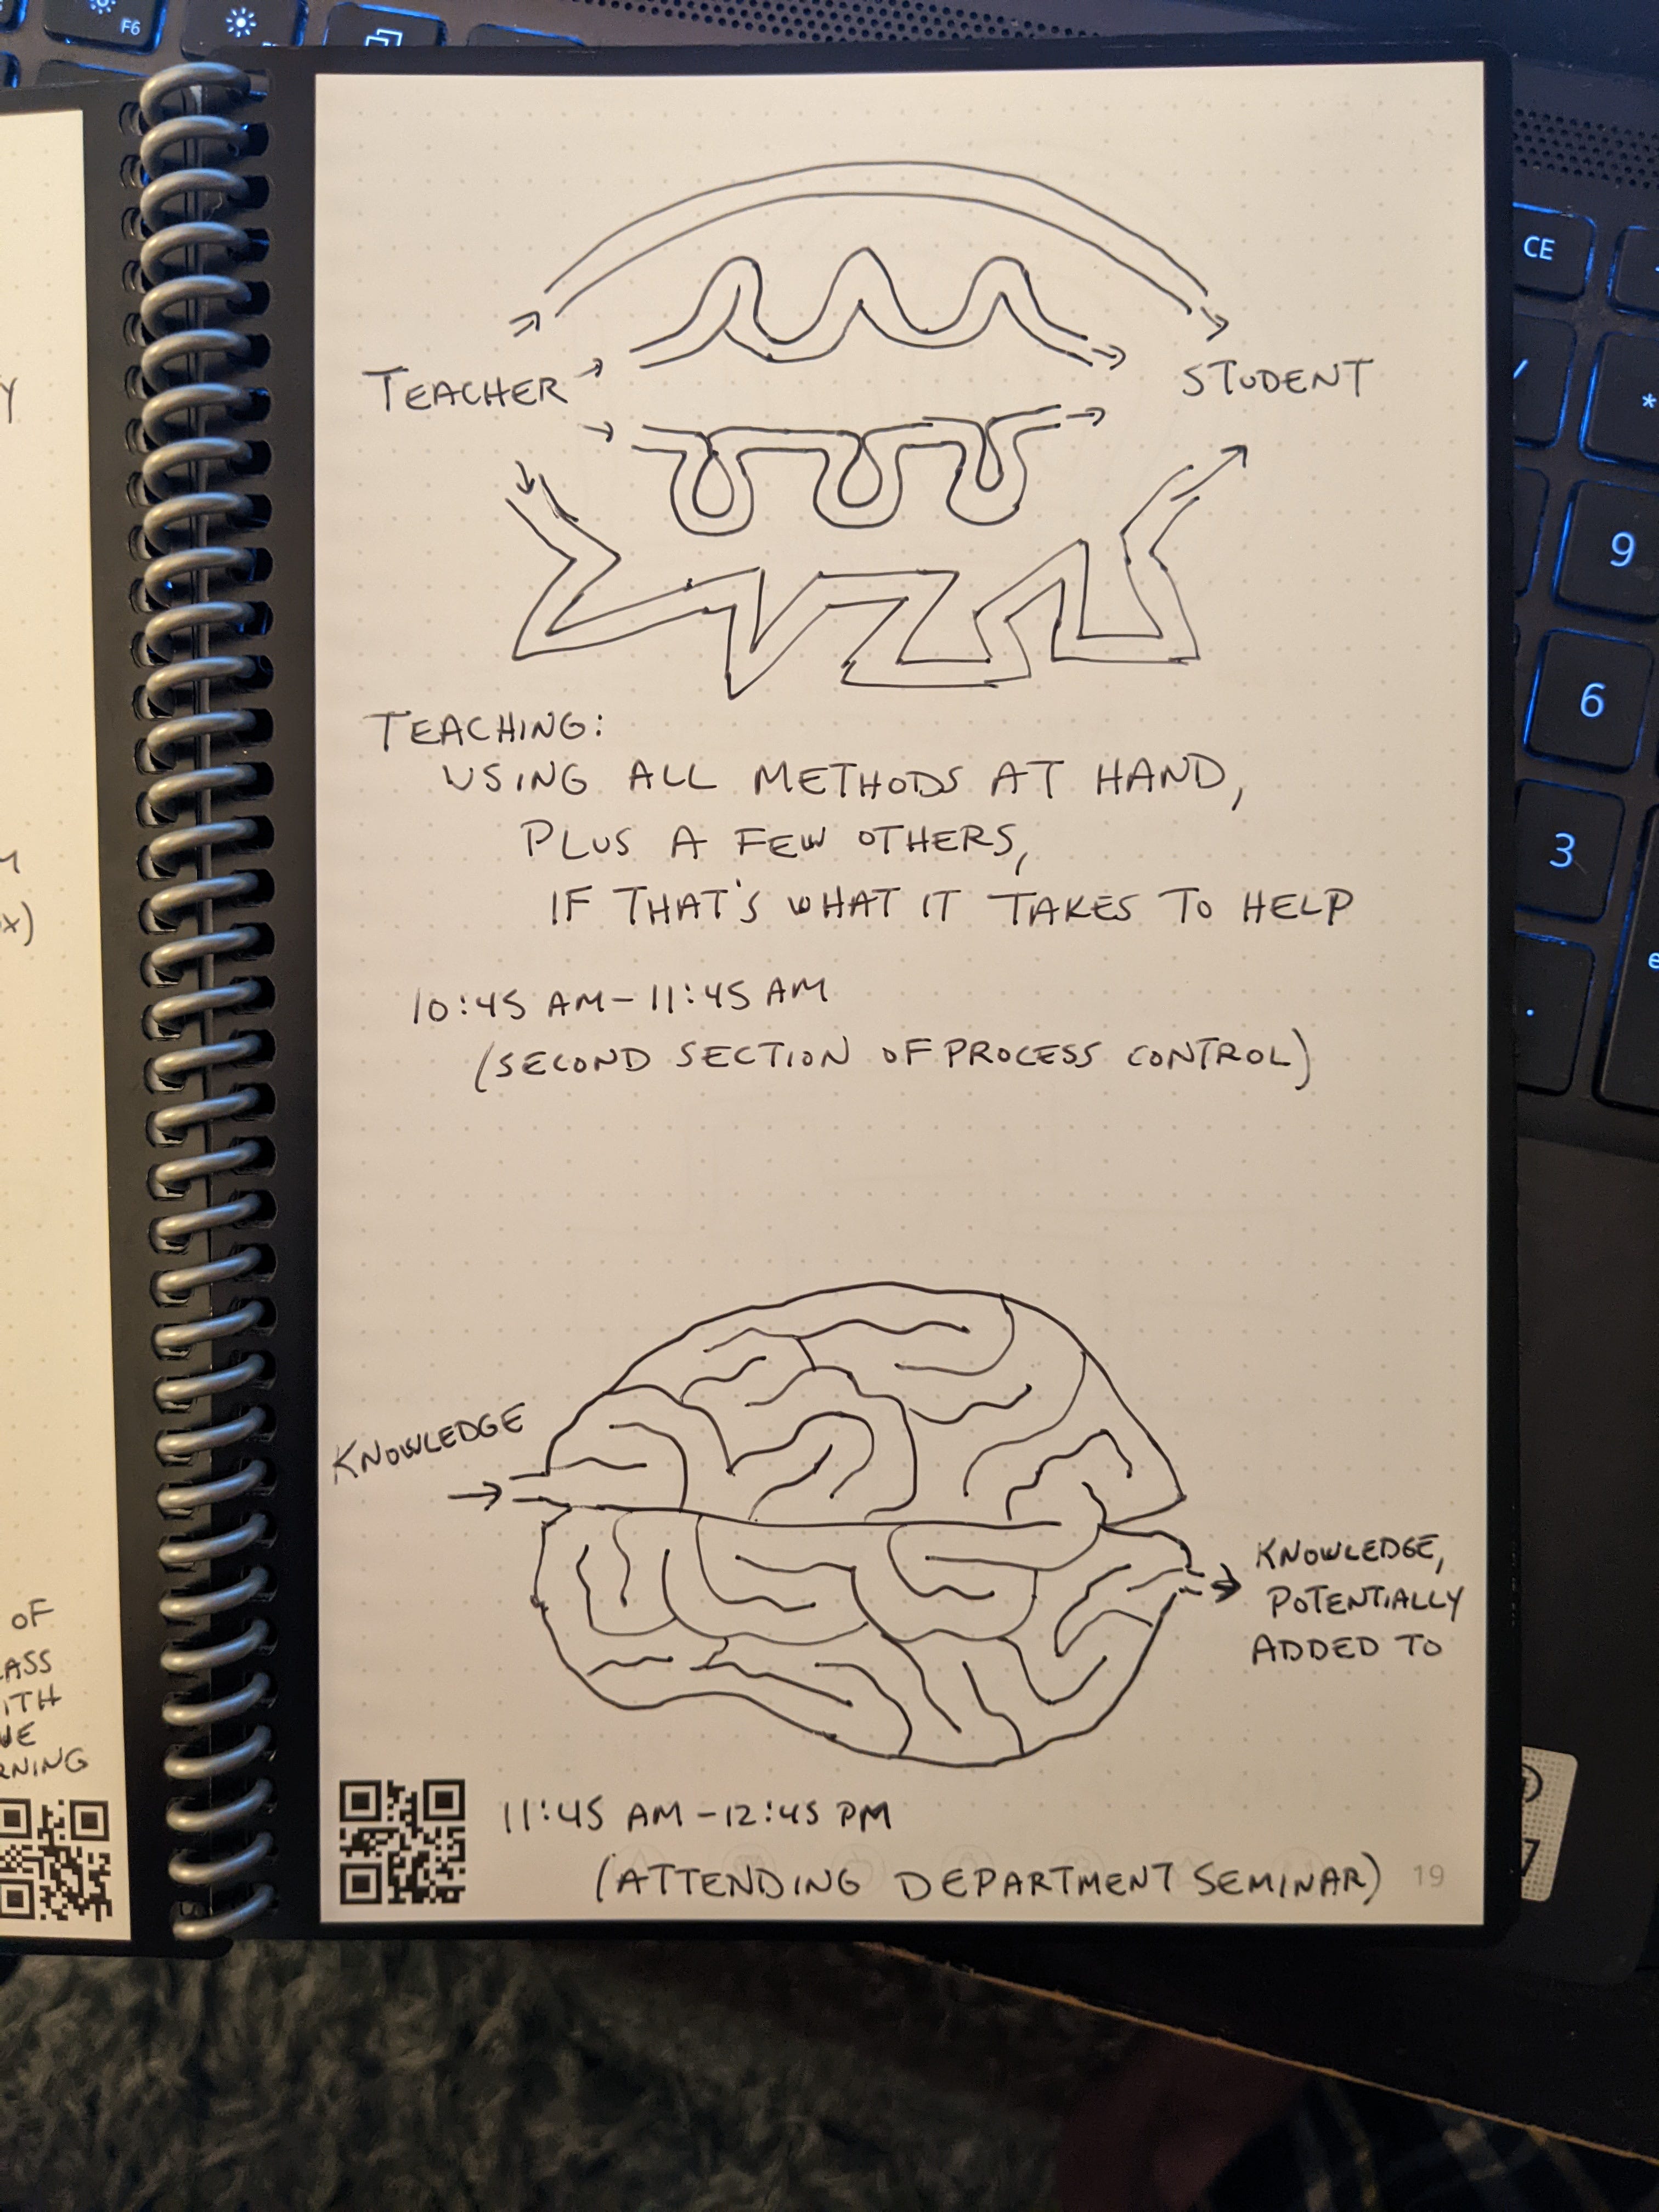 F6
CE
*
9
6
3
.
Y
x)
OF
ASS
ITH
RNING
TEACHER
STUDENT
TEACHING:
USING ALL METHODS AT HAND,
PLUS A FEW OTHERS,
IF THAT'S WHAT IT TAKES TO HELP
10:45 AM - 11:45 AM
(SECOND SECTION OF PROCESS CONTROL)
KNOWLEDGE
KNOWLEDGE,
POTENTIALLY
ADDED TO
11:45 AM - 12:45 PM
(ATTENDING DEPARTMENT SEMINAR)
19